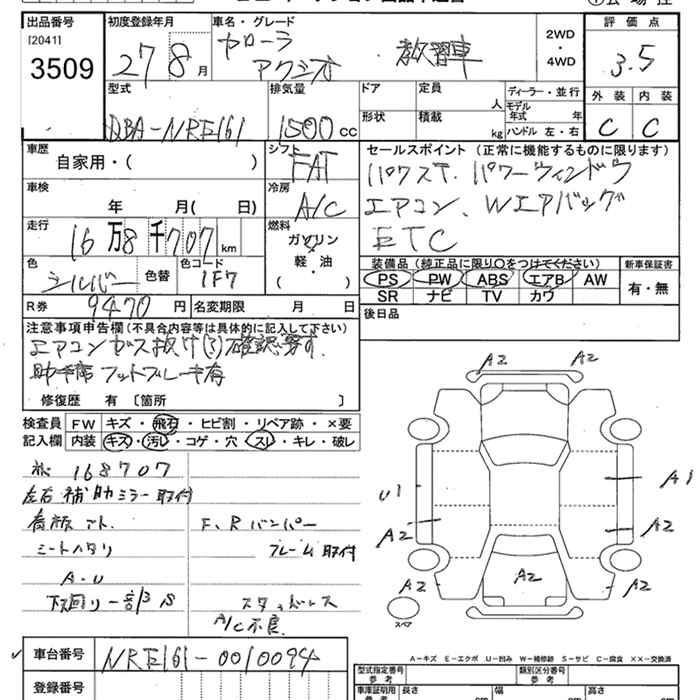 出品番号
[2041]
3509
初度登録年月
27 8月
車名・グレード
カローラ
アクシオ 教習車
2WD
・
4WD
評価点
3.5
外装 内装
C C
型式
DBA-NRE161
排気量
1500cc
ドア
定員
人
形状
積載
kg
ディーラー・並行
モデル
年式 年
ハンドル 左・右
車歴
自家用・( )
シフト
FAT
車検
年 月( 日)
冷房
A/C
走行
16万8千707km
燃料
ガソリン
軽・油
( )
色
シルバー
色替
色コード
1F7
R券
9470円
名変期限 月 日
セールスポイント (正常に機能するものに限ります)
パワステ、パワーウィンドウ
エアコン、Wエアバッグ
ETC
装備品 (純正品に限り○をつけてください)
PS PW ABS エアB AW
SR ナビ TV カワ
新車保証書
有・無
後日品
注意事項申告欄 (不具合内容等は具体的に記入して下さい)
エアコンガス抜け(?)確認要す
助手席フットブレーキ有
修復歴 有 〔箇所 〕
検査員
記入欄
FW キズ・飛石・ヒビ割・リペア跡・×要
内装 キズ・汚レ・コゲ・穴・スレ・キレ・破レ
168707
左右補助ミラー取付
看板アト
F、Rバンパー
シートハタリ
フレーム取付
A・U
下回り一部S
スタッドレス
A/C不良
A2 A2
U1 A1
A2 A2
A2
A2 A2
スペア
A−キズ E−エクボ U−凹み W−補修跡 S−サビ C−腐食 ××−交換済
車台番号
NRE161-0010094
登録番号
型式指定番号
参考
類別区分番号
参考
車庫証明用
参考
長さ 幅 高さ
cm cm cm